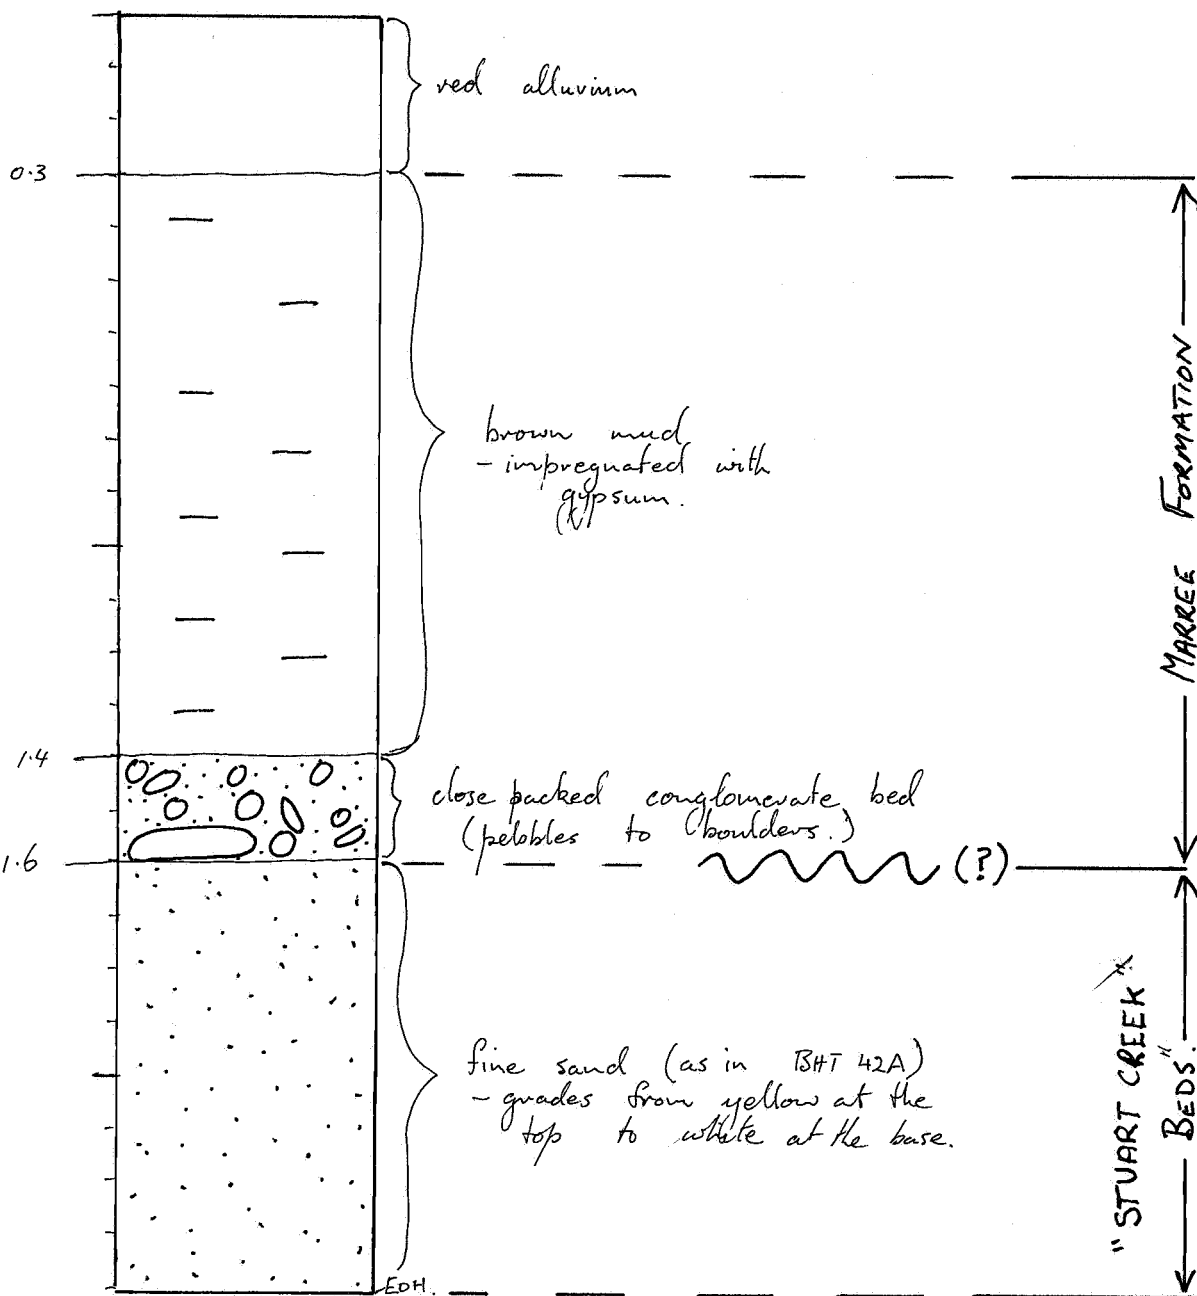 red alluvium
0.3
brown mud
- impregnated with
gypsum.
MARREE FORMATION
1.4
close packed conglomerate bed
(pebbles to boulders.)
1.6
(?)
fine sand (as in BHT 42A)
- grades from yellow at the
top to white at the base.
"STUART CREEK"
BEDS."
EOH.